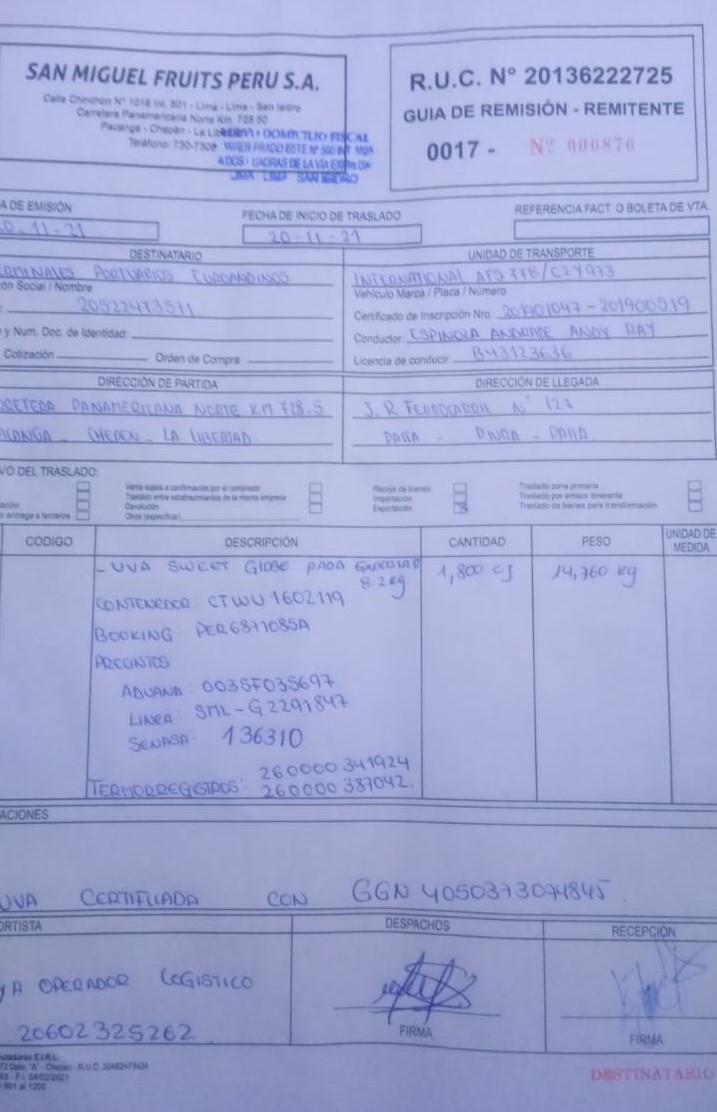 SAN MIGUEL FRUITS PERU S.A.
Calle Chinchon N° 1018 Int. 801 - Lima - Lima - San Isidro
Carretera Panamericana Norte Km. 728.50
Pacanga - Chepén - La
DOMICILIO FISCAL
Teléfono: 730-7308
LIMA LIMA SAN ISIDRO
R.U.C. N° 20136222725
GUIA DE REMISIÓN - REMITENTE
0017 - Nº 000876
A DE EMISIÓN
0.11-21
FECHA DE INICIO DE TRASLADO
20-11-21
REFERENCIA FACT. O BOLETA DE VTA.
DESTINATARIO
UNIDAD DE TRANSPORTE
PORTUARIOS EUROANDINOS
INTERNATIONAL
ón Social / Nombre
Vehículo Marca / Placa / Número
20522473511
Certificado de Inscripción Nro. 201901047 - 201900519
y Num. Doc. de Identidad:
Conductor: ESPINOZA ANDRADE ANDY RAY
Cotización
Orden de Compra
Licencia de conducir: B43123636
DIRECCIÓN DE PARTIDA
DIRECCIÓN DE LLEGADA
RETERA PANAMERICANA NORTE KM 728.5
J.R FERROCARRIL N° 127
CANGA - CHEPEN - LA LIBERTAD
PAITA - PIURA - PAITA
VO DEL TRASLADO:
Venta sujeta a confirmación por el comprador
Recojo de bienes
Traslado zona primaria
Traslado entre establecimientos de la misma empresa
Importación
Traslado por emisor itinerante
Devolución
Exportación
Traslado de bienes para transformación
entrega a terceros
Otros (especificar)
CODIGO
DESCRIPCIÓN
CANTIDAD
PESO
UNIDAD DE MEDIDA
- UVA SWEET GLOBE PARA EXPORTAR
8.2 kg
1,800 CJ
14,760 kg
CONTENEDOR: CTWU 1602119
BOOKING: PER6871085A
PRECINTOS
ADUANA: 0035F035697
LINEA: SML-G2291847
SENASA: 136310
260000341924
TERMORREGISTROS: 260000387042.
ACIONES
UVA CERTIFICADA CON GGN 4050373074845
ORTISTA
DESPACHOS
RECEPCIÓN
YA OPERADOR LOGISTICO
20602325262
FIRMA
FIRMA
E.I.R.L.
DESTINATARIO
801 al 1200